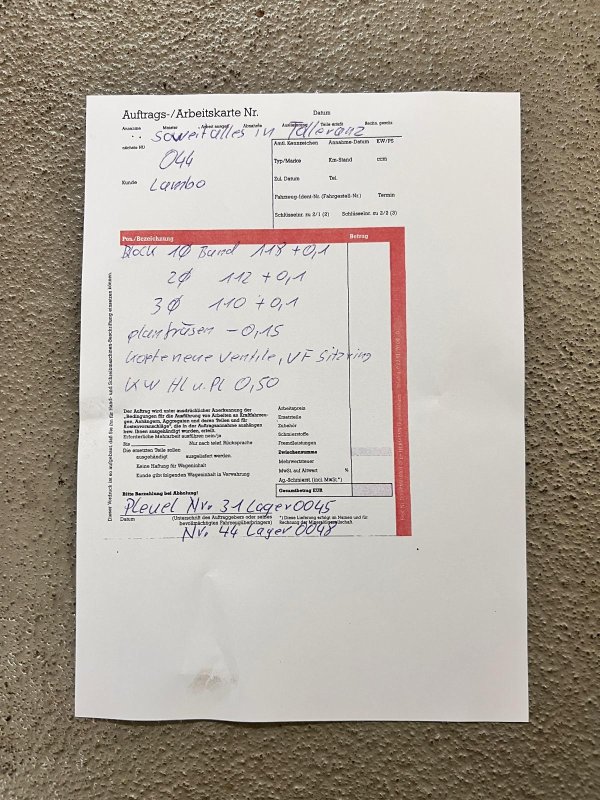 Auftrags-/Arbeitskarte Nr.
Datum
Annahme Meister Arbeit ausgef. Abnahme Auslieferung Teile erfaßt Rechn. geschr.
soweit alles in Tolleranz
nächste HU
044
Kunde Lambo
Amtl. Kennzeichen Annahme-Datum KW/PS
Typ/Marke Km-Stand ccm
Zul. Datum Tel.
Fahrzeug-Ident-Nr. (Fahrgestell-Nr.) Termin
Schlüsselnr. zu 2/1 (2) Schlüsselnr. zu 2/2 (3)
Pos./Bezeichnung Betrag
Block 1Ø Bund 118 + 0,1
2Ø 112 + 0,1
3Ø 110 + 0,1
planfräsen - 0,15
neue Ventile, VF Sitzring
KW HL u. PL 0,50
Der Auftrag wird unter ausdrücklicher Anerkennung der
„Bedingungen für die Ausführung von Arbeiten an Kraftfahrzeu-
gen, Anhängern, Aggregaten und deren Teilen und für
Kostenvoranschläge", die in der Auftragsannahme aushängen
bzw. ihnen ausgehändigt wurden, erteilt.
Erforderliche Mehrarbeit ausführen nein/ja
Bis Nur nach telef. Rücksprache
Die ersetzten Teile sollen
ausgehändigt ausgeliefert werden.
Keine Haftung für Wageninhalt
Kunde gibt folgenden Wageninhalt in Verwahrung
Arbeitspreis
Ersatzteile
Zubehör
Schmierstoffe
Fremdleistungen
Zwischensumme
Mehrwertsteuer
MwSt auf Altwert %
Ag.-Schmierst. (incl. MwSt.*)
Gesamtbetrag EUR
Bitte Barzahlung bei Abholung!
Pleuel Nr. 31 Lager 0045
Datum (Unterschrift des Auftraggebers oder seines
bevollmächtigten Fahrzeugüberbringers)
*) Diese Lieferung erfolgt im Namen und für
Rechnung der Mineralölgesellschaft.
Nr. 44 Lager 0048